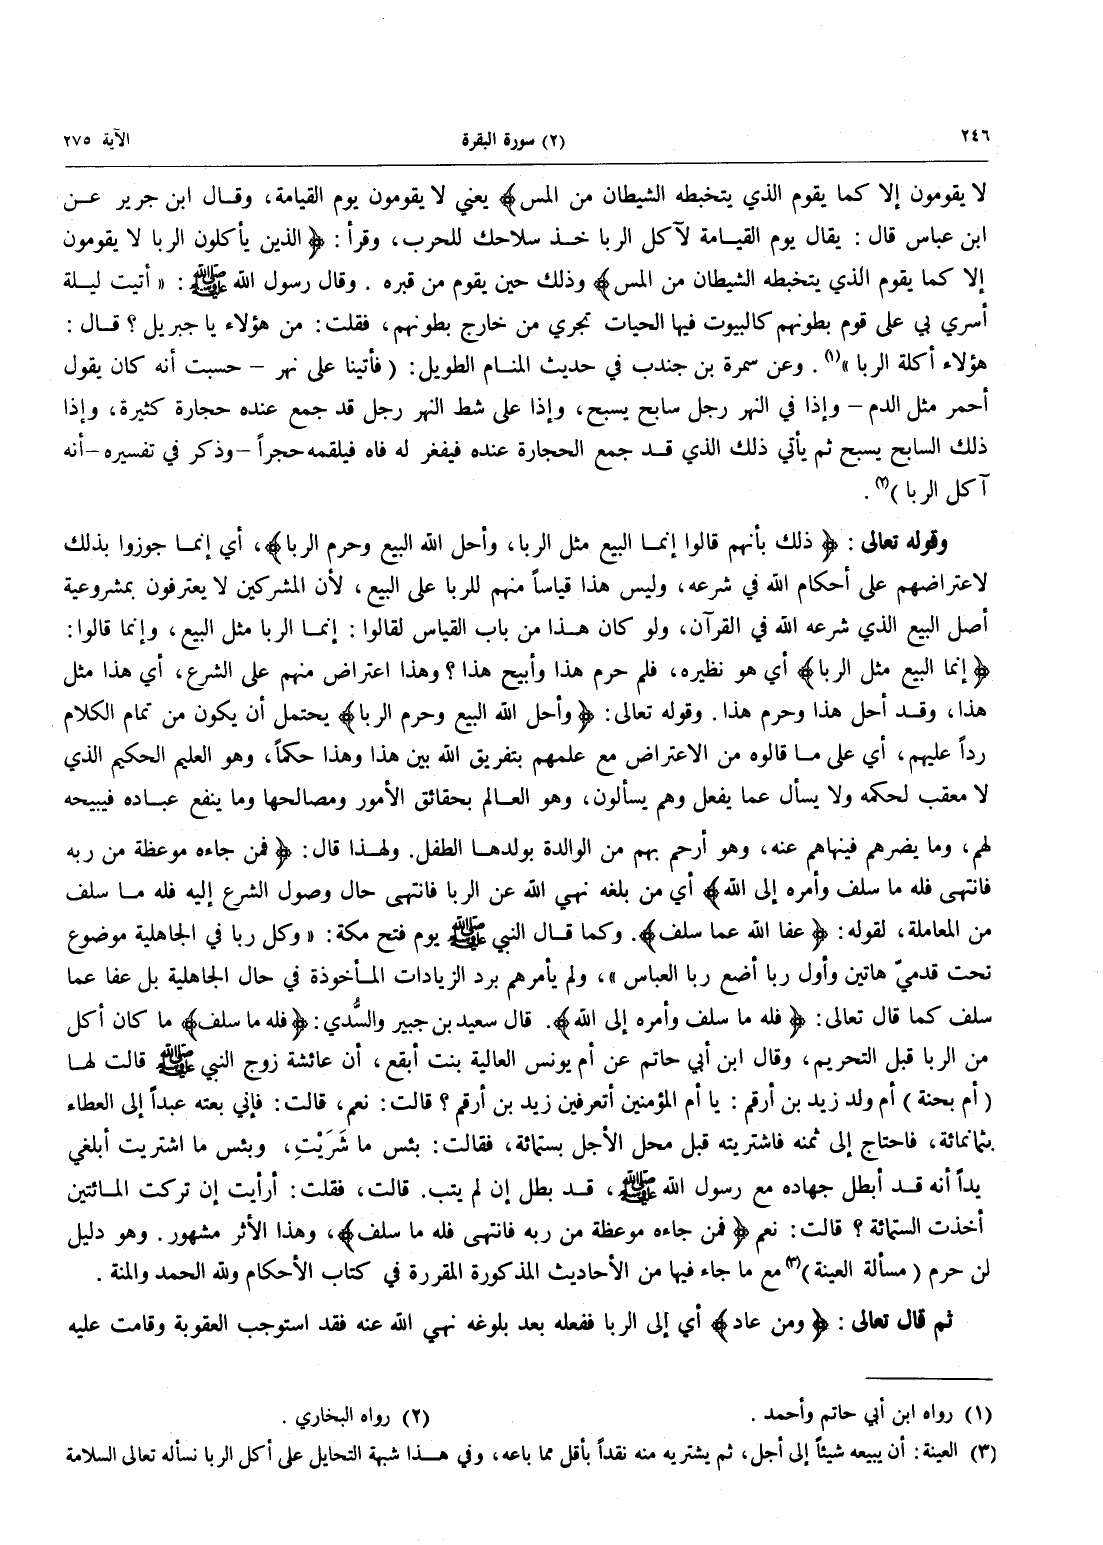 ٢٤٦ (٢) سورة البقرة الآية ٢٧٥
لا يقومون إلا كما يقوم الذي يتخبطه الشيطان من المس﴾ يعني لا يقومون يوم القيامة، وقال ابن جرير عن
ابن عباس قال : يقال يوم القيامة لآكل الربا خذ سلاحك للحرب، وقرأ : ﴿الذين يأكلون الربا لا يقومون
إلا كما يقوم الذي يتخبطه الشيطان من المس﴾ وذلك حين يقوم من قبره . وقال رسول الله ﷺ : « أتيت ليلة
أسري بي على قوم بطونهم كالبيوت فيها الحيات تجري من خارج بطونهم، فقلت: من هؤلاء يا جبريل ؟ قال :
هؤلاء أكلة الربا »(١). وعن سمرة بن جندب في حديث المنام الطويل: ( فأتينا على نهر – حسبت أنه كان يقول
أحمر مثل الدم – وإذا في النهر رجل سابح يسبح، وإذا على شط النهر رجل قد جمع عنده حجارة كثيرة، وإذا
ذلك السابح يسبح ثم يأتي ذلك الذي قد جمع الحجارة عنده فيفغر له فاه فيلقمه حجراً –وذكر في تفسيره –أنه
آكل الربا )(٢).
وقوله تعالى : ﴿ ذلك بأنهم قالوا إنما البيع مثل الربا، وأحل الله البيع وحرم الربا﴾، أي إنما جوزوا بذلك
لاعتراضهم على أحكام الله في شرعه، وليس هذا قياساً منهم للربا على البيع، لأن المشركين لا يعترفون بمشروعية
أصل البيع الذي شرعه الله في القرآن، ولو كان هذا من باب القياس لقالوا : إنما الربا مثل البيع، وإنما قالوا:
﴿ إنما البيع مثل الربا﴾ أي هو نظيره، فلم حرم هذا وأبيح هذا ؟ وهذا اعتراض منهم على الشرع، أي هذا مثل
هذا، وقد أحل هذا وحرم هذا . وقوله تعالى: ﴿وأحل الله البيع وحرم الربا﴾ يحتمل أن يكون من تمام الكلام
رداً عليهم، أي على ما قالوه من الاعتراض مع علمهم بتفريق الله بين هذا وهذا حكماً، وهو العليم الحكيم الذي
لا معقب لحكمه ولا يسأل عما يفعل وهم يسألون، وهو العالم بحقائق الأمور ومصالحها وما ينفع عباده فيبيحه
لهم، وما يضرهم فينهاهم عنه، وهو أرحم بهم من الوالدة بولدها الطفل. ولهذا قال: ﴿ فمن جاءه موعظة من ربه
فانتهى فله ما سلف وأمره إلى الله﴾ أي من بلغه نهي الله عن الربا فانتهى حال وصول الشرع إليه فله ما سلف
من المعاملة، لقوله: ﴿عفا الله عما سلف﴾. وكما قال النبي ﷺ يوم فتح مكة: « وكل ربا في الجاهلية موضوع
تحت قدميّ هاتين وأول ربا أضع ربا العباس »، ولم يأمرهم برد الزيادات المأخوذة في حال الجاهلية بل عفا عما
سلف كما قال تعالى: ﴿ فله ما سلف وأمره إلى الله﴾. قال سعيد بن جبير والسُّدي: ﴿فله ما سلف﴾ ما كان أكل
من الربا قبل التحريم، وقال ابن أبي حاتم عن أم يونس العالية بنت أبقع، أن عائشة زوج النبي ﷺ قالت لها
( أم بحنة ) أم ولد زيد بن أرقم : يا أم المؤمنين أتعرفين زيد بن أرقم ؟ قالت: نعم، قالت: فإني بعته عبداً إلى العطاء
بثمانمائة، فاحتاج إلى ثمنه فاشتريته قبل محل الأجل بستمائة، فقالت: بئس ما شَرَيْتِ، وبئس ما اشتريت أبلغي
يداً أنه قد أبطل جهاده مع رسول الله ﷺ ، قد بطل إن لم يتب. قالت، فقلت: أرأيت إن تركت المائتين
أخذت الستمائة ؟ قالت: نعم ﴿فمن جاءه موعظة من ربه فانتهى فله ما سلف﴾، وهذا الأثر مشهور. وهو دليل
لن حرم ( مسألة العينة )(٣) مع ما جاء فيها من الأحاديث المذكورة المقررة في كتاب الأحكام ولله الحمد والمنة .
ثم قال تعالى : ﴿ ومن عاد﴾ أي إلى الربا ففعله بعد بلوغه نهي الله عنه فقد استوجب العقوبة وقامت عليه
(١) رواه ابن أبي حاتم وأحمد . (٢) رواه البخاري .
(٣) العينة: أن يبيعه شيئاً إلى أجل، ثم يشتريه منه نقداً بأقل مما باعه، وفي هذا شبهة التحايل على أكل الربا نسأله تعالى السلامة